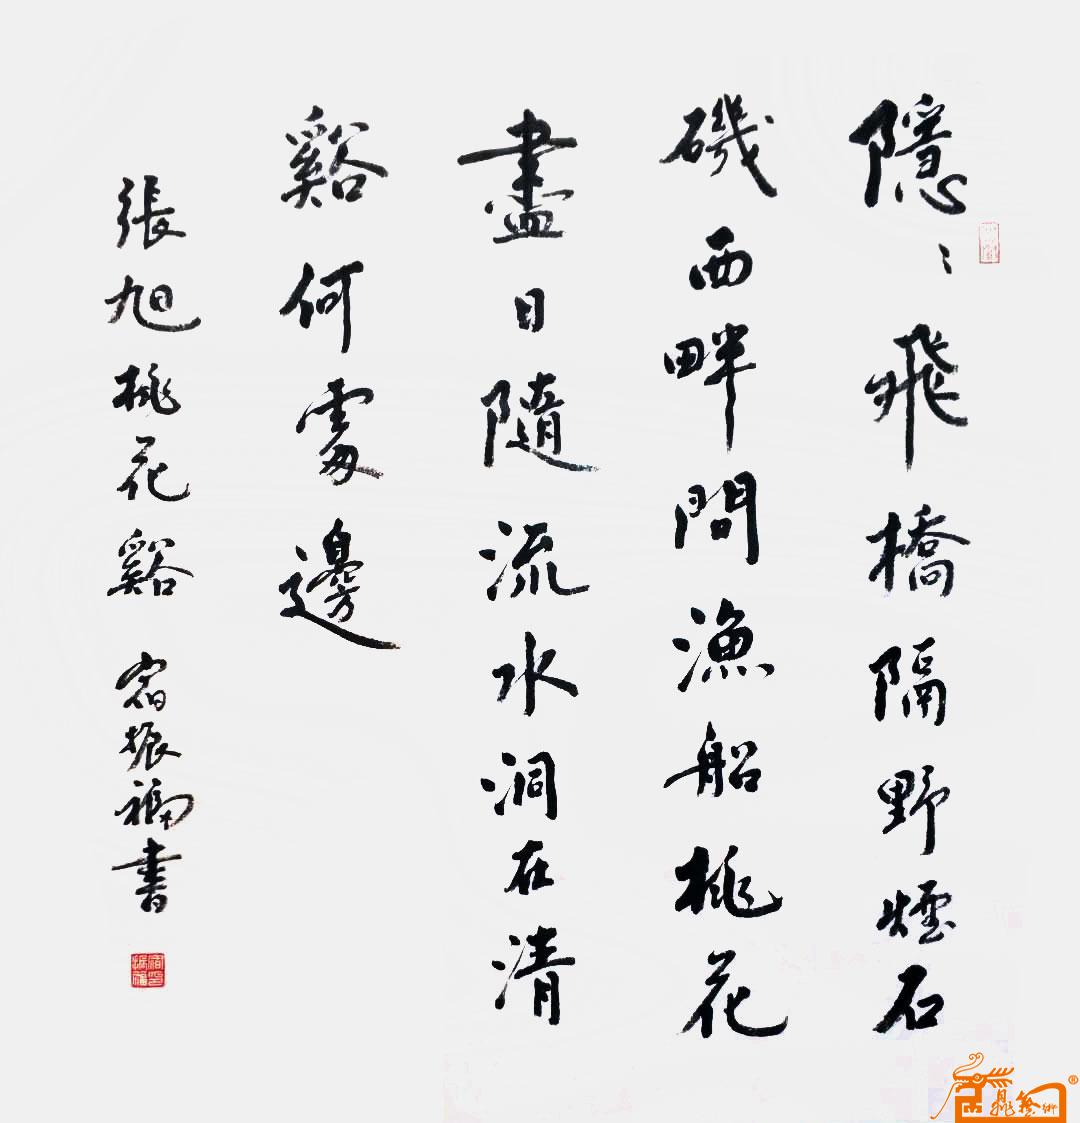 隱〻飛橋隔野煙石
磯西畔問漁船桃花
盡日隨流水洞在清
谿何處邊
張旭桃花谿 宿振福書